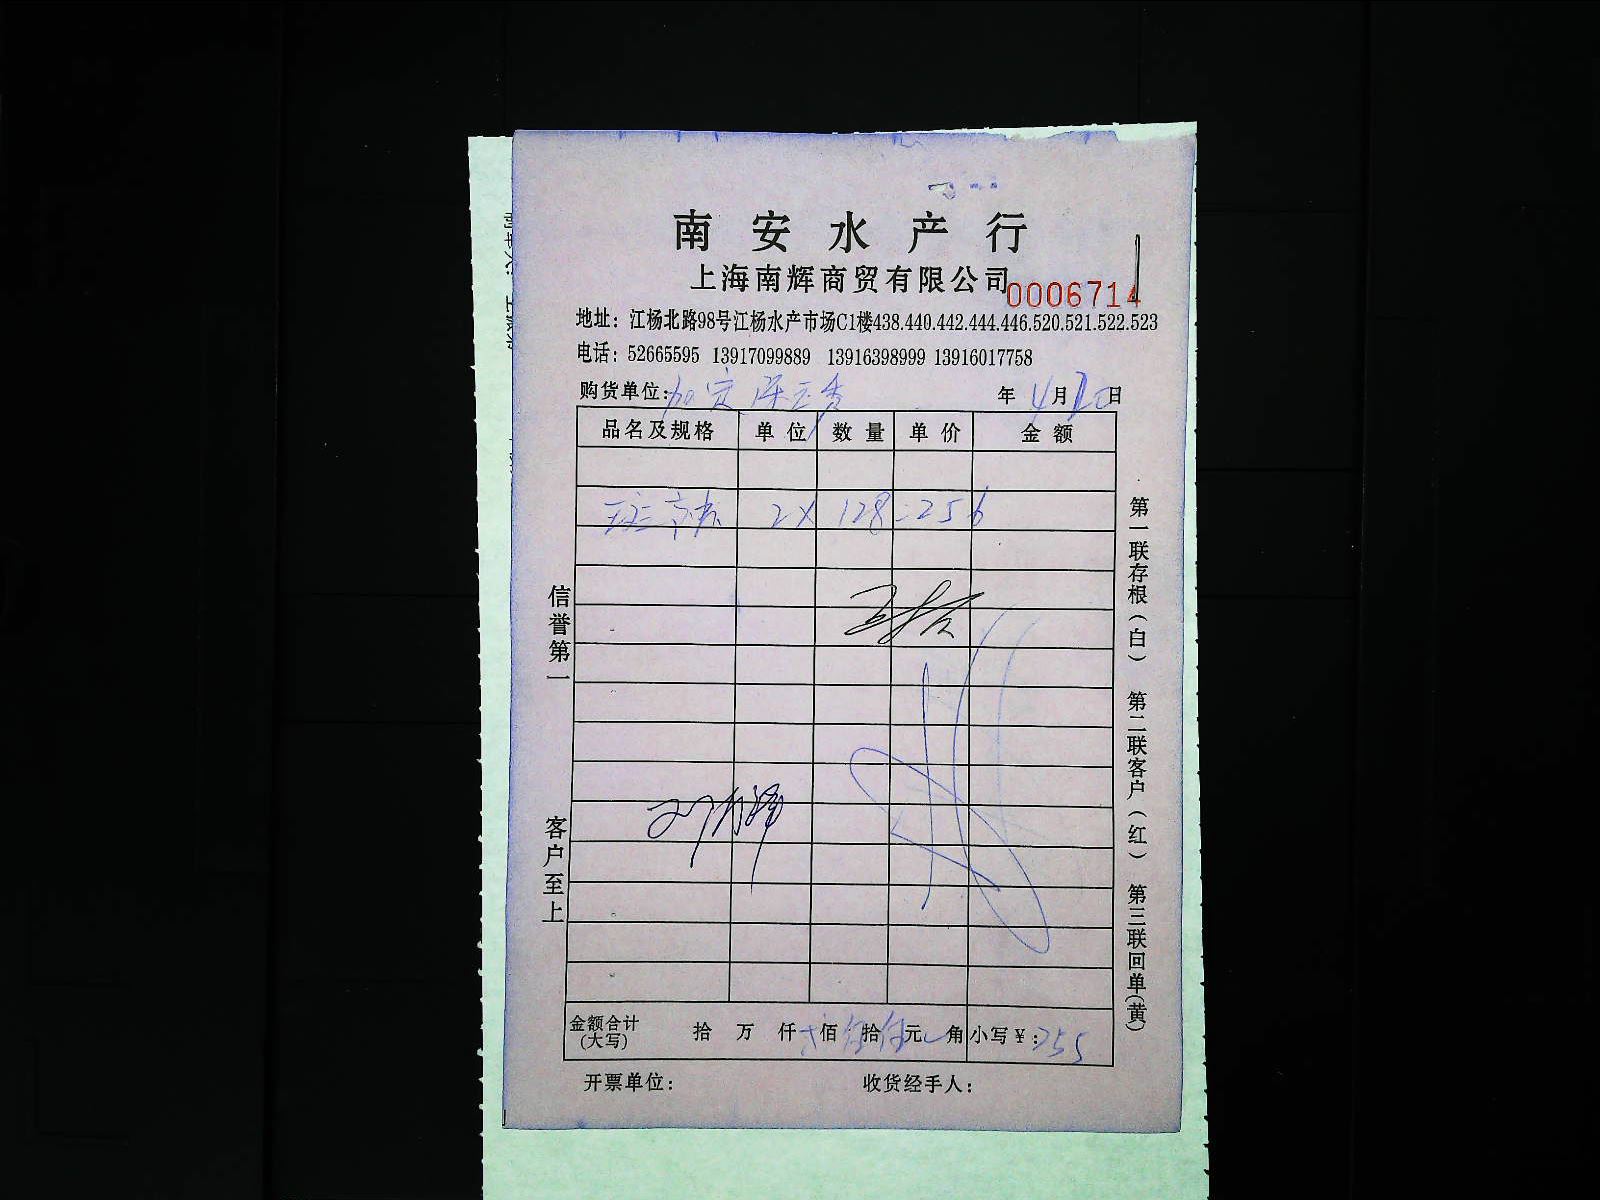 南安水产行
上海南辉商贸有限公司
0006714
地址：江杨北路98号江杨水产市场C1楼438.440.442.444.446.520.521.522.523
电话：52665595 13917099889 13916398999 13916017758
购货单位： 年 4月20日
品名及规格 单位 数量 单价 金额
2X 128=256
信誉第一
客户至上
第一联存根（白） 第二联客户（红） 第三联回单（黄）
金额合计（大写） 拾 万 仟 佰伍拾伍元 角 小写￥：255
开票单位： 收货经手人：